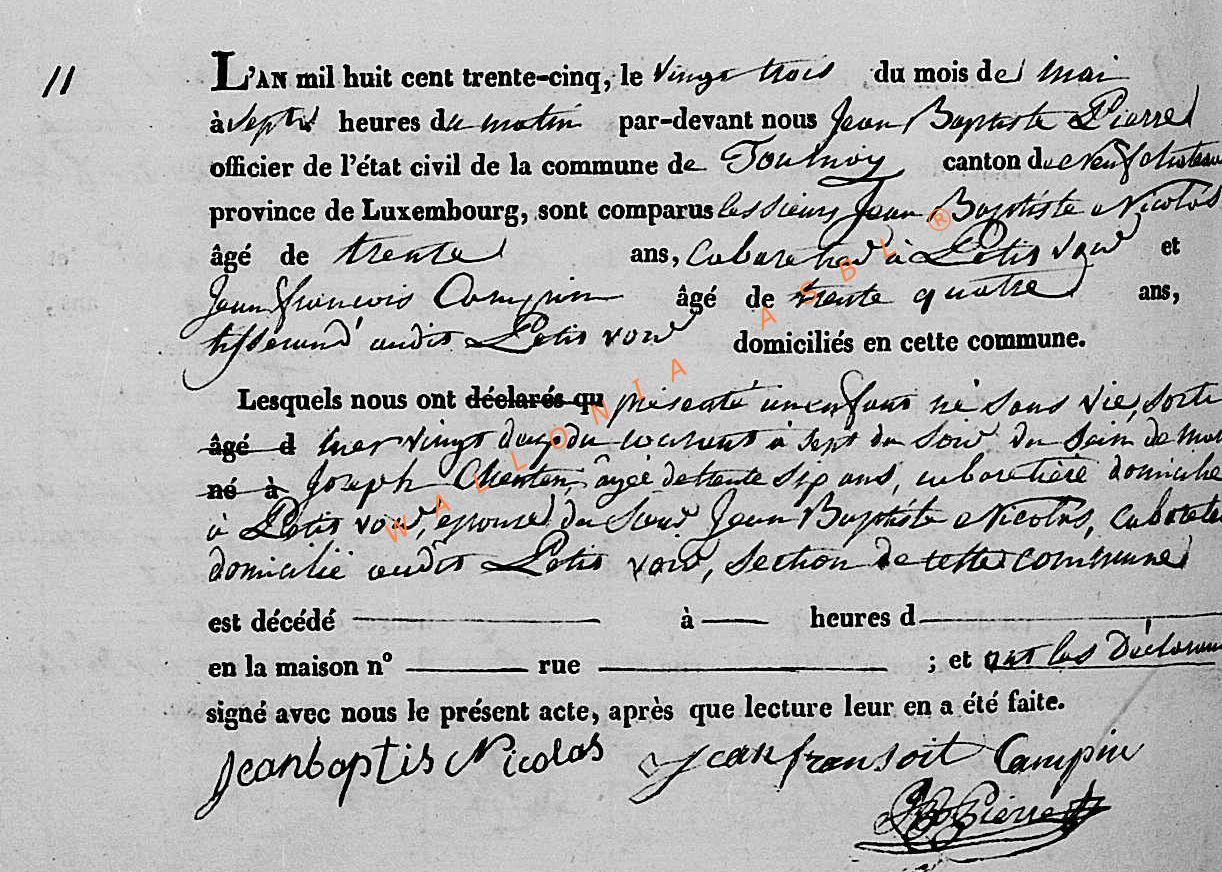 11
L'AN mil huit cent trente-cinq, le vingt trois du mois de mai
à sept heures du matin par-devant nous Jean Baptiste Pierre
officier de l'état civil de la commune de Tournay canton de Neufchateau
province de Luxembourg, sont comparus les sieurs Jean Baptiste Nicolas
âgé de trente ans, cabaretier à Petit voir et
Jean francois Campin âgé de trente quatre ans,
tisserand audit Petit voir domiciliés en cette commune.
Lesquels nous ont déclarés qu présenté un enfant né sans vie, sorti
âgé d hier vingt deux du courant à sept du soir du sain de
né à Joseph agée de trente six ans, cabaretière domicilié
à Petit voir, epouse du Sieur Jean Baptiste Nicolas,
domicilié audit Petit voir, section de cette commune
est décédé à heures d
en la maison nº rue ; et ont les Déclarans
signé avec nous le présent acte, après que lecture leur en a été faite.
Jeanbaptis Nicolas Jean fransoit Campin
JB Pierre
WALLONIA ASBL ®